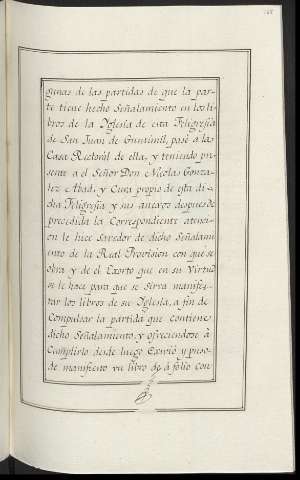 gunas de las partidas de que la par-
te tiene hecho Señalamiento en los li-
bros de la Yglesia de esta Feligresia
de San Juan de pasé a la
Casa Rectoral de ella, y teniendo pre-
sente a el Señor Don Nicolas Gonza-
lez Abad, y Cura propio de esta di-
cha Feligresia y sus anexos despues de
precedida la Correspondiente aten-
on le hice Savedor de dicho Señalam-
iento de la Real Provision con que se
obra y de el Exorto que en su Virtud
se le hace para que se sirva manifes-
tar los libros de su Iglesia, a fin de
Compulsar la partida que contiene
dicho Señalamiento, y ofreciendose à
Cumplirlo desde luego Exivió y puso
de manifiesto vn libro de á folio con